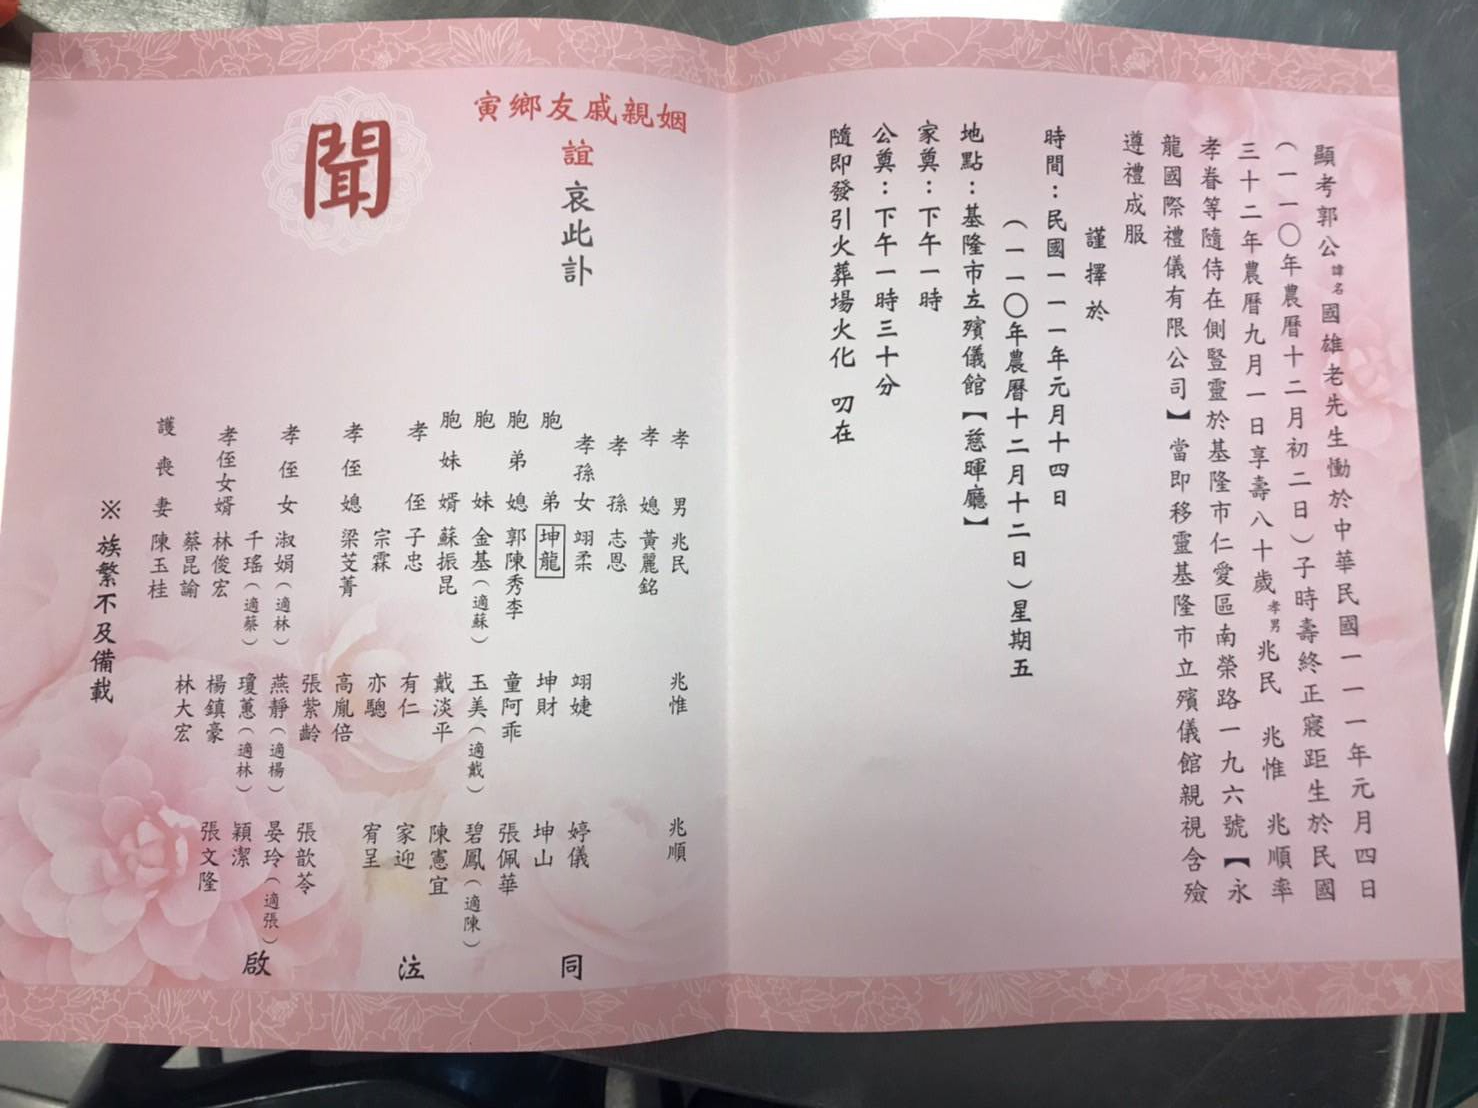 顯考郭公諱名國雄老先生慟於中華民國一一一年元月四日
(一一〇年農曆十二月初二日)子時壽終正寢距生於民國
三十二年農曆九月一日享壽八十歲孝男兆民 兆惟 兆順率
孝眷等隨侍在側豎靈於基隆市仁愛區南榮路一九六號【永
龍國際禮儀有限公司】當即移靈基隆市立殯儀館親視含殮
遵禮成服
謹擇於
時間：民國一一一年元月十四日
(一一〇年農曆十二月十二日)星期五
地點：基隆市立殯儀館【慈暉廳】
家奠：下午一時
公奠：下午一時三十分
隨即發引火葬場火化 叨在
姻親戚友鄉寅
誼哀此訃
聞
孝男 兆民 兆惟 兆順
孝媳 黃麗銘
孝孫 志恩
孝孫女 翊柔 翊婕 婷儀
胞弟 坤龍 坤財 坤山
胞弟媳 郭陳秀李 童阿乖 張佩華
胞妹 金基(適蘇) 玉美(適戴) 碧鳳(適陳)
胞妹婿 蘇振昆 戴淡平 陳憲宜
孝侄 子忠 有仁 家迎
宗霖 亦驄 宥呈
孝侄媳 梁芠菁 高胤倍
張紫齡 張歆苓
孝侄女 淑娟(適林) 燕靜(適楊) 晏玲(適張)
千瑤(適蔡) 瓊蕙(適林) 穎潔
孝侄女婿 林俊宏 楊鎮豪 張文隆
蔡昆諭 林大宏
護喪妻 陳玉桂
※族繁不及備載
同泣啟